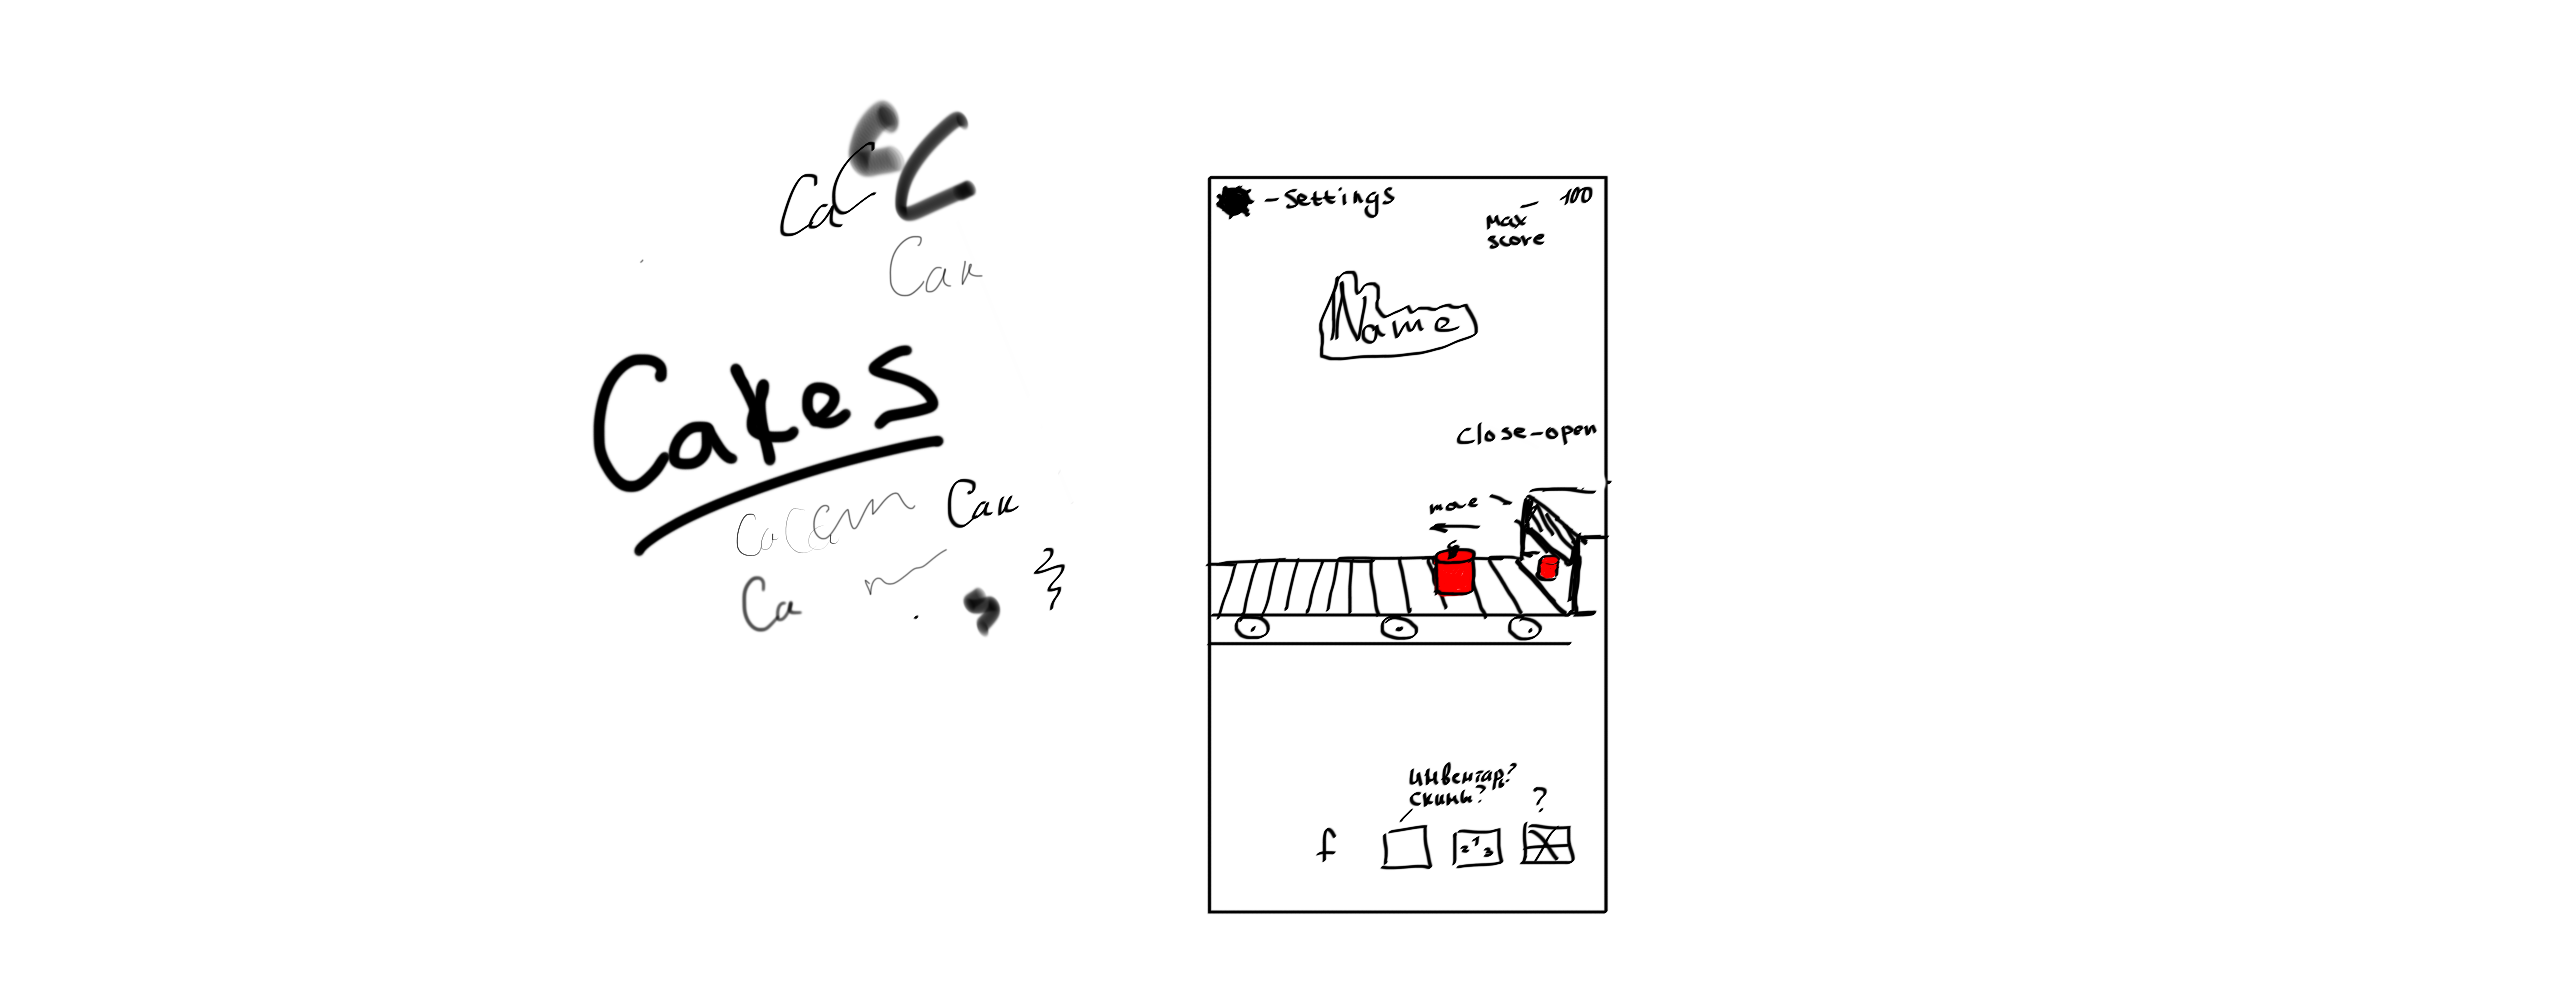 Ca
C
C
C
Cak
Cakes
Cak
Ca
- Settings
100
Max
score
Name
Close-open
move
инвентар?
скины?
?
f
2 1 3